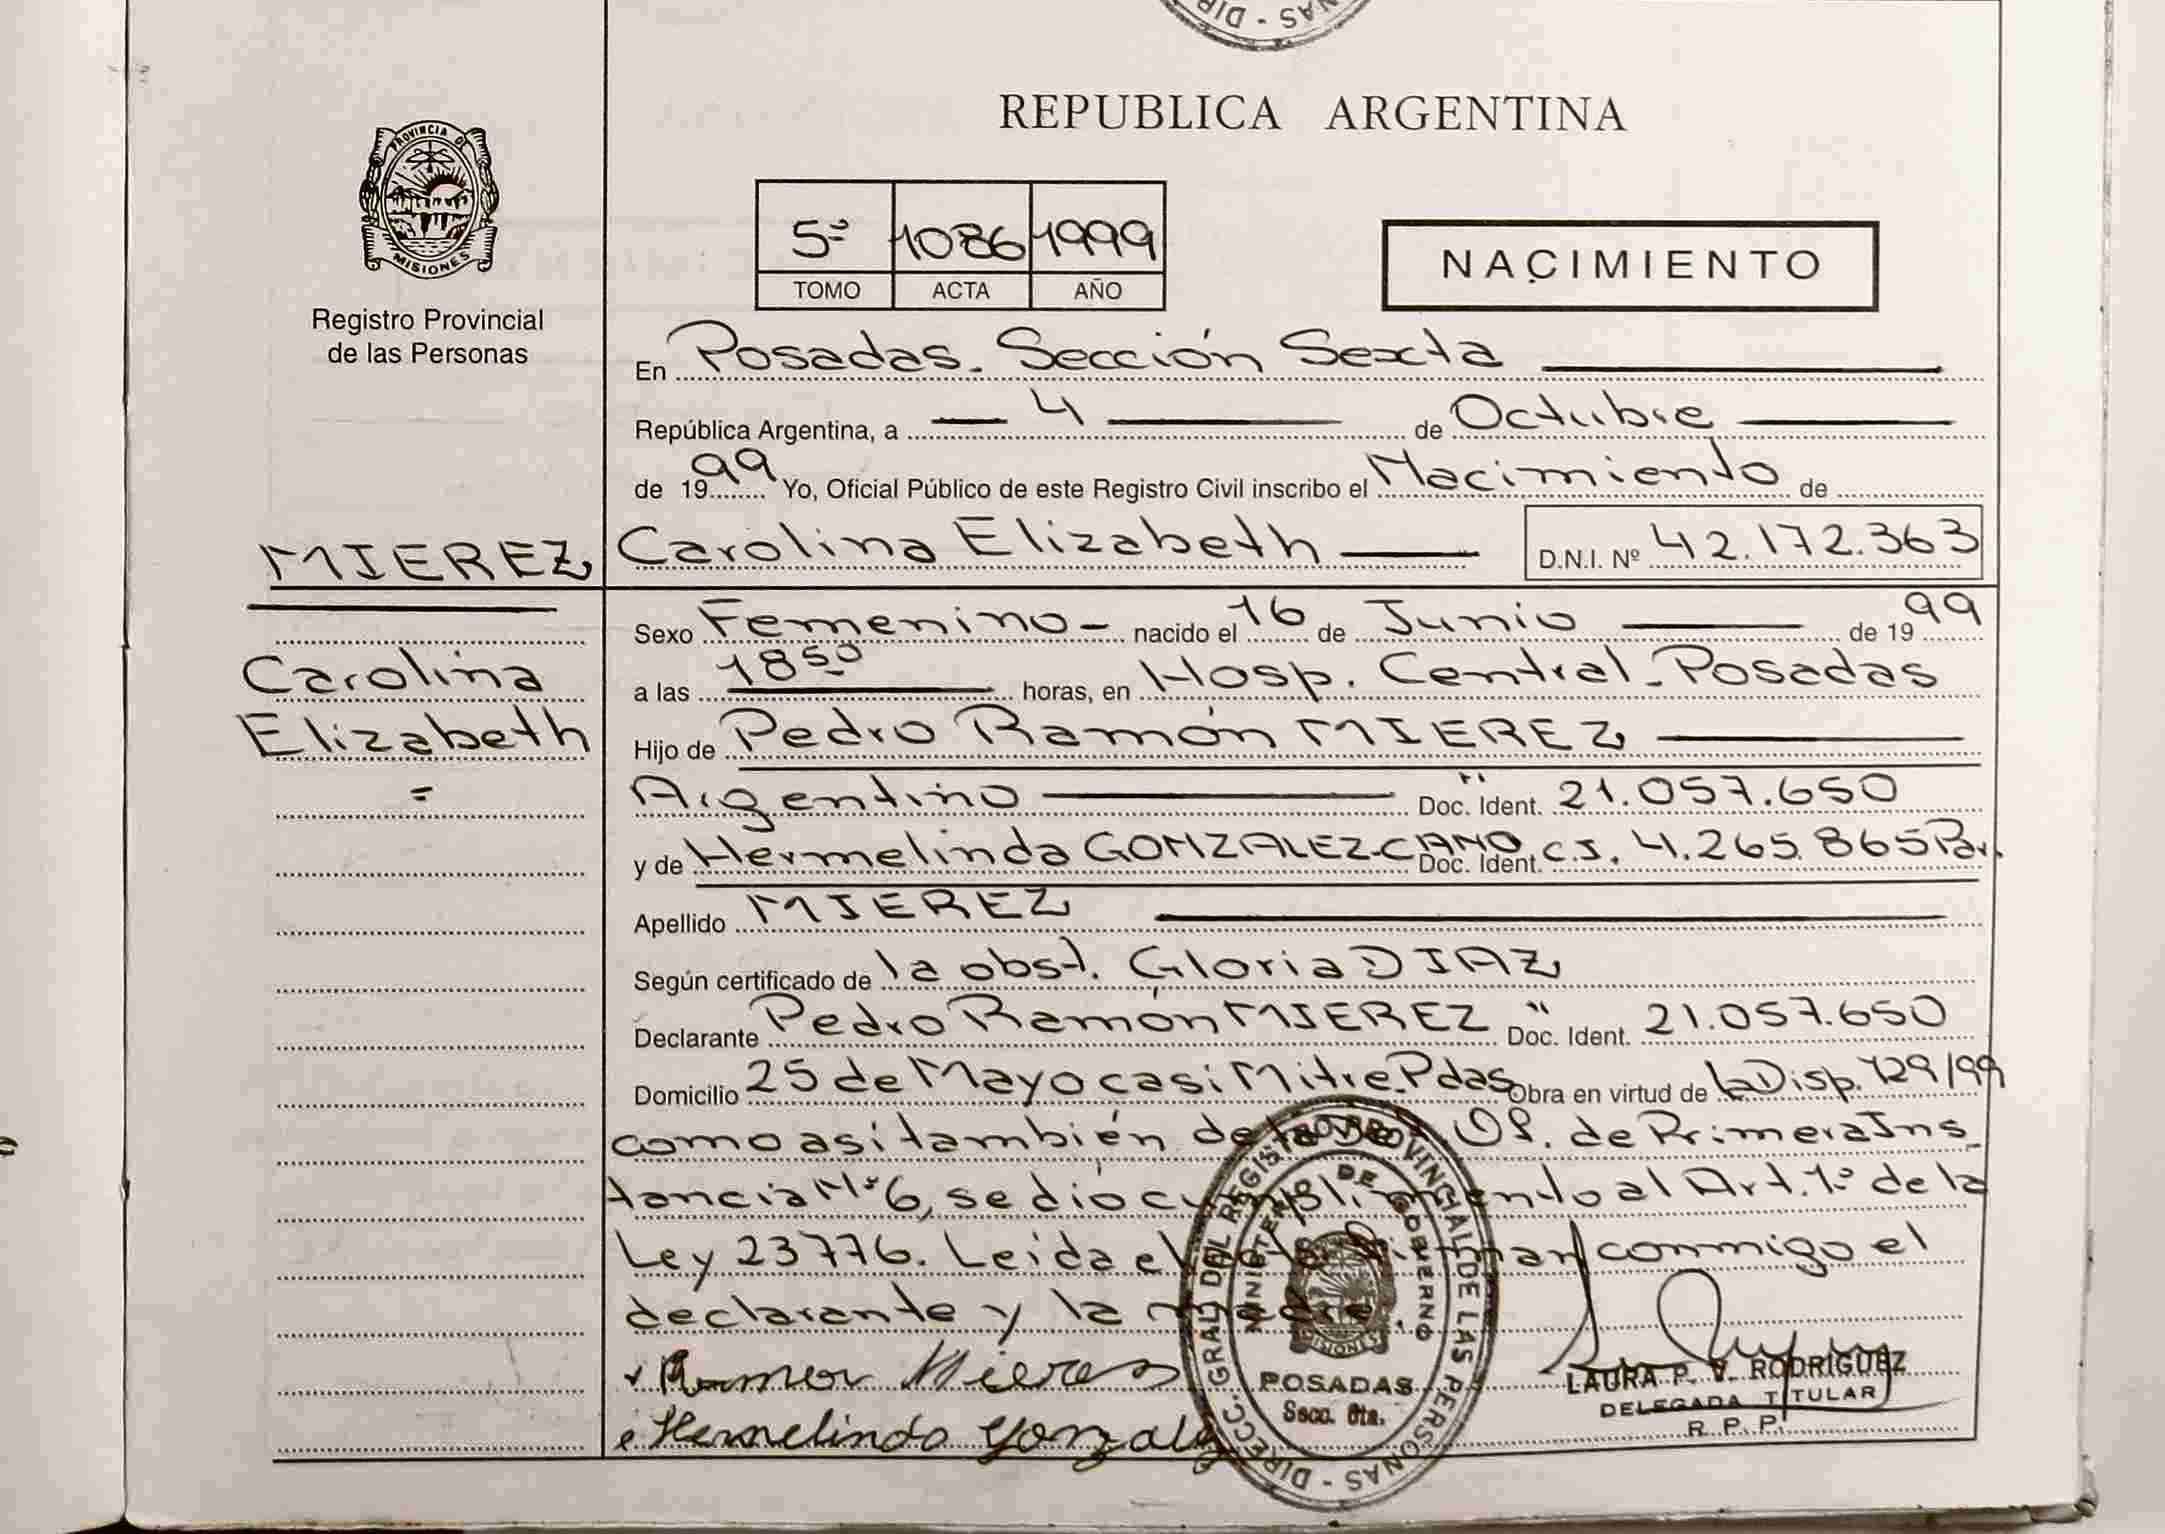 DIR - SAN
REPUBLICA ARGENTINA
PROVINCIA DE
MISIONES
Registro Provincial
de las Personas
5º 1086 1999
TOMO ACTA AÑO
NACIMIENTO
En Posadas. Sección Sexta
República Argentina, a 4 de Octubre
de 1999 Yo, Oficial Público de este Registro Civil inscribo el Nacimiento de
MIEREZ Carolina Elizabeth D.N.I. Nº 42.172.363
Sexo Femenino - nacido el 16 de Junio de 1999
Carolina
a las 18 50 horas, en Hosp. Central - Posadas
Elizabeth
Hijo de Pedro Ramón MIEREZ
Argentino Doc. Ident. " 21.057.650
y de Hermelinda GONZALEZ CANO Doc. Ident. C.I. 4.265.865 Par.
Apellido MIEREZ
Según certificado de la obst. Gloria DIAZ
Declarante Pedro Ramón MIEREZ Doc. Ident. " 21.057.650
Domicilio 25 de Mayo casi Mitre. Pdas Obra en virtud de la Disp. 729/99
como asi también de la Def. Of. de Primera Ins_
tancia Nº 6, se dió cumplimiento al Art. 1º de la
Ley 23776. Leida el acta firman conmigo el
declarante y la madre.
Ramon Mieres
Hermelinda Gonzalez
DIRECC. GRAL DEL REGISTRO PROVINCIAL DE LAS PERSONAS -
MINISTERIO DE GOBIERNO
MISIONES
POSADAS
Secc. 6ta.
LAURA P. V. RODRIGUEZ
DELEGADA TITULAR
R. P. P.